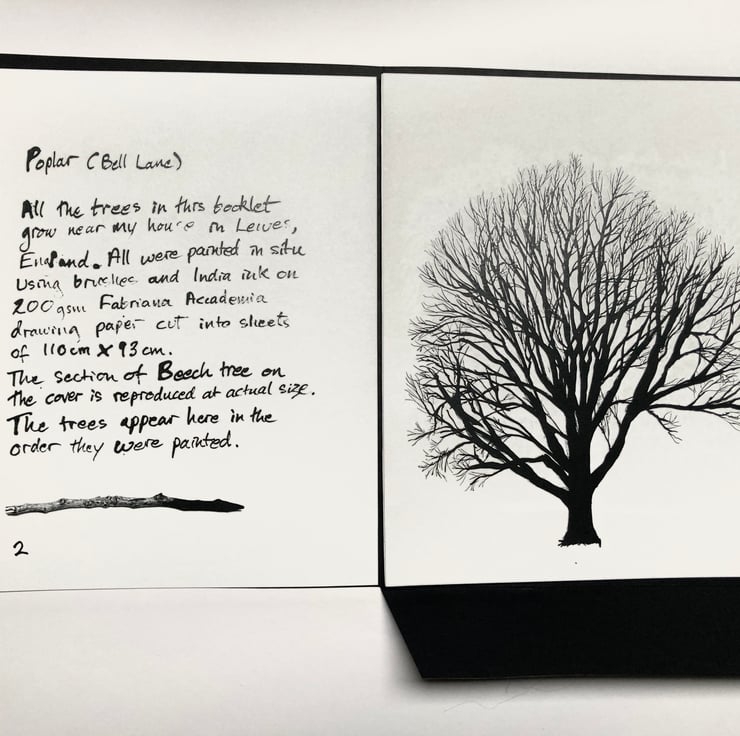 Poplar (Bell Lane)
All the trees in this booklet
grow near my house in Lewes,
England. All were painted in situ
using brushes and India ink on
200gsm Fabriana Accademia
drawing paper cut into sheets
of 110cm X 93cm.
The section of Beech tree on
the cover is reproduced at actual size.
The trees appear here in the
order they were painted.
2